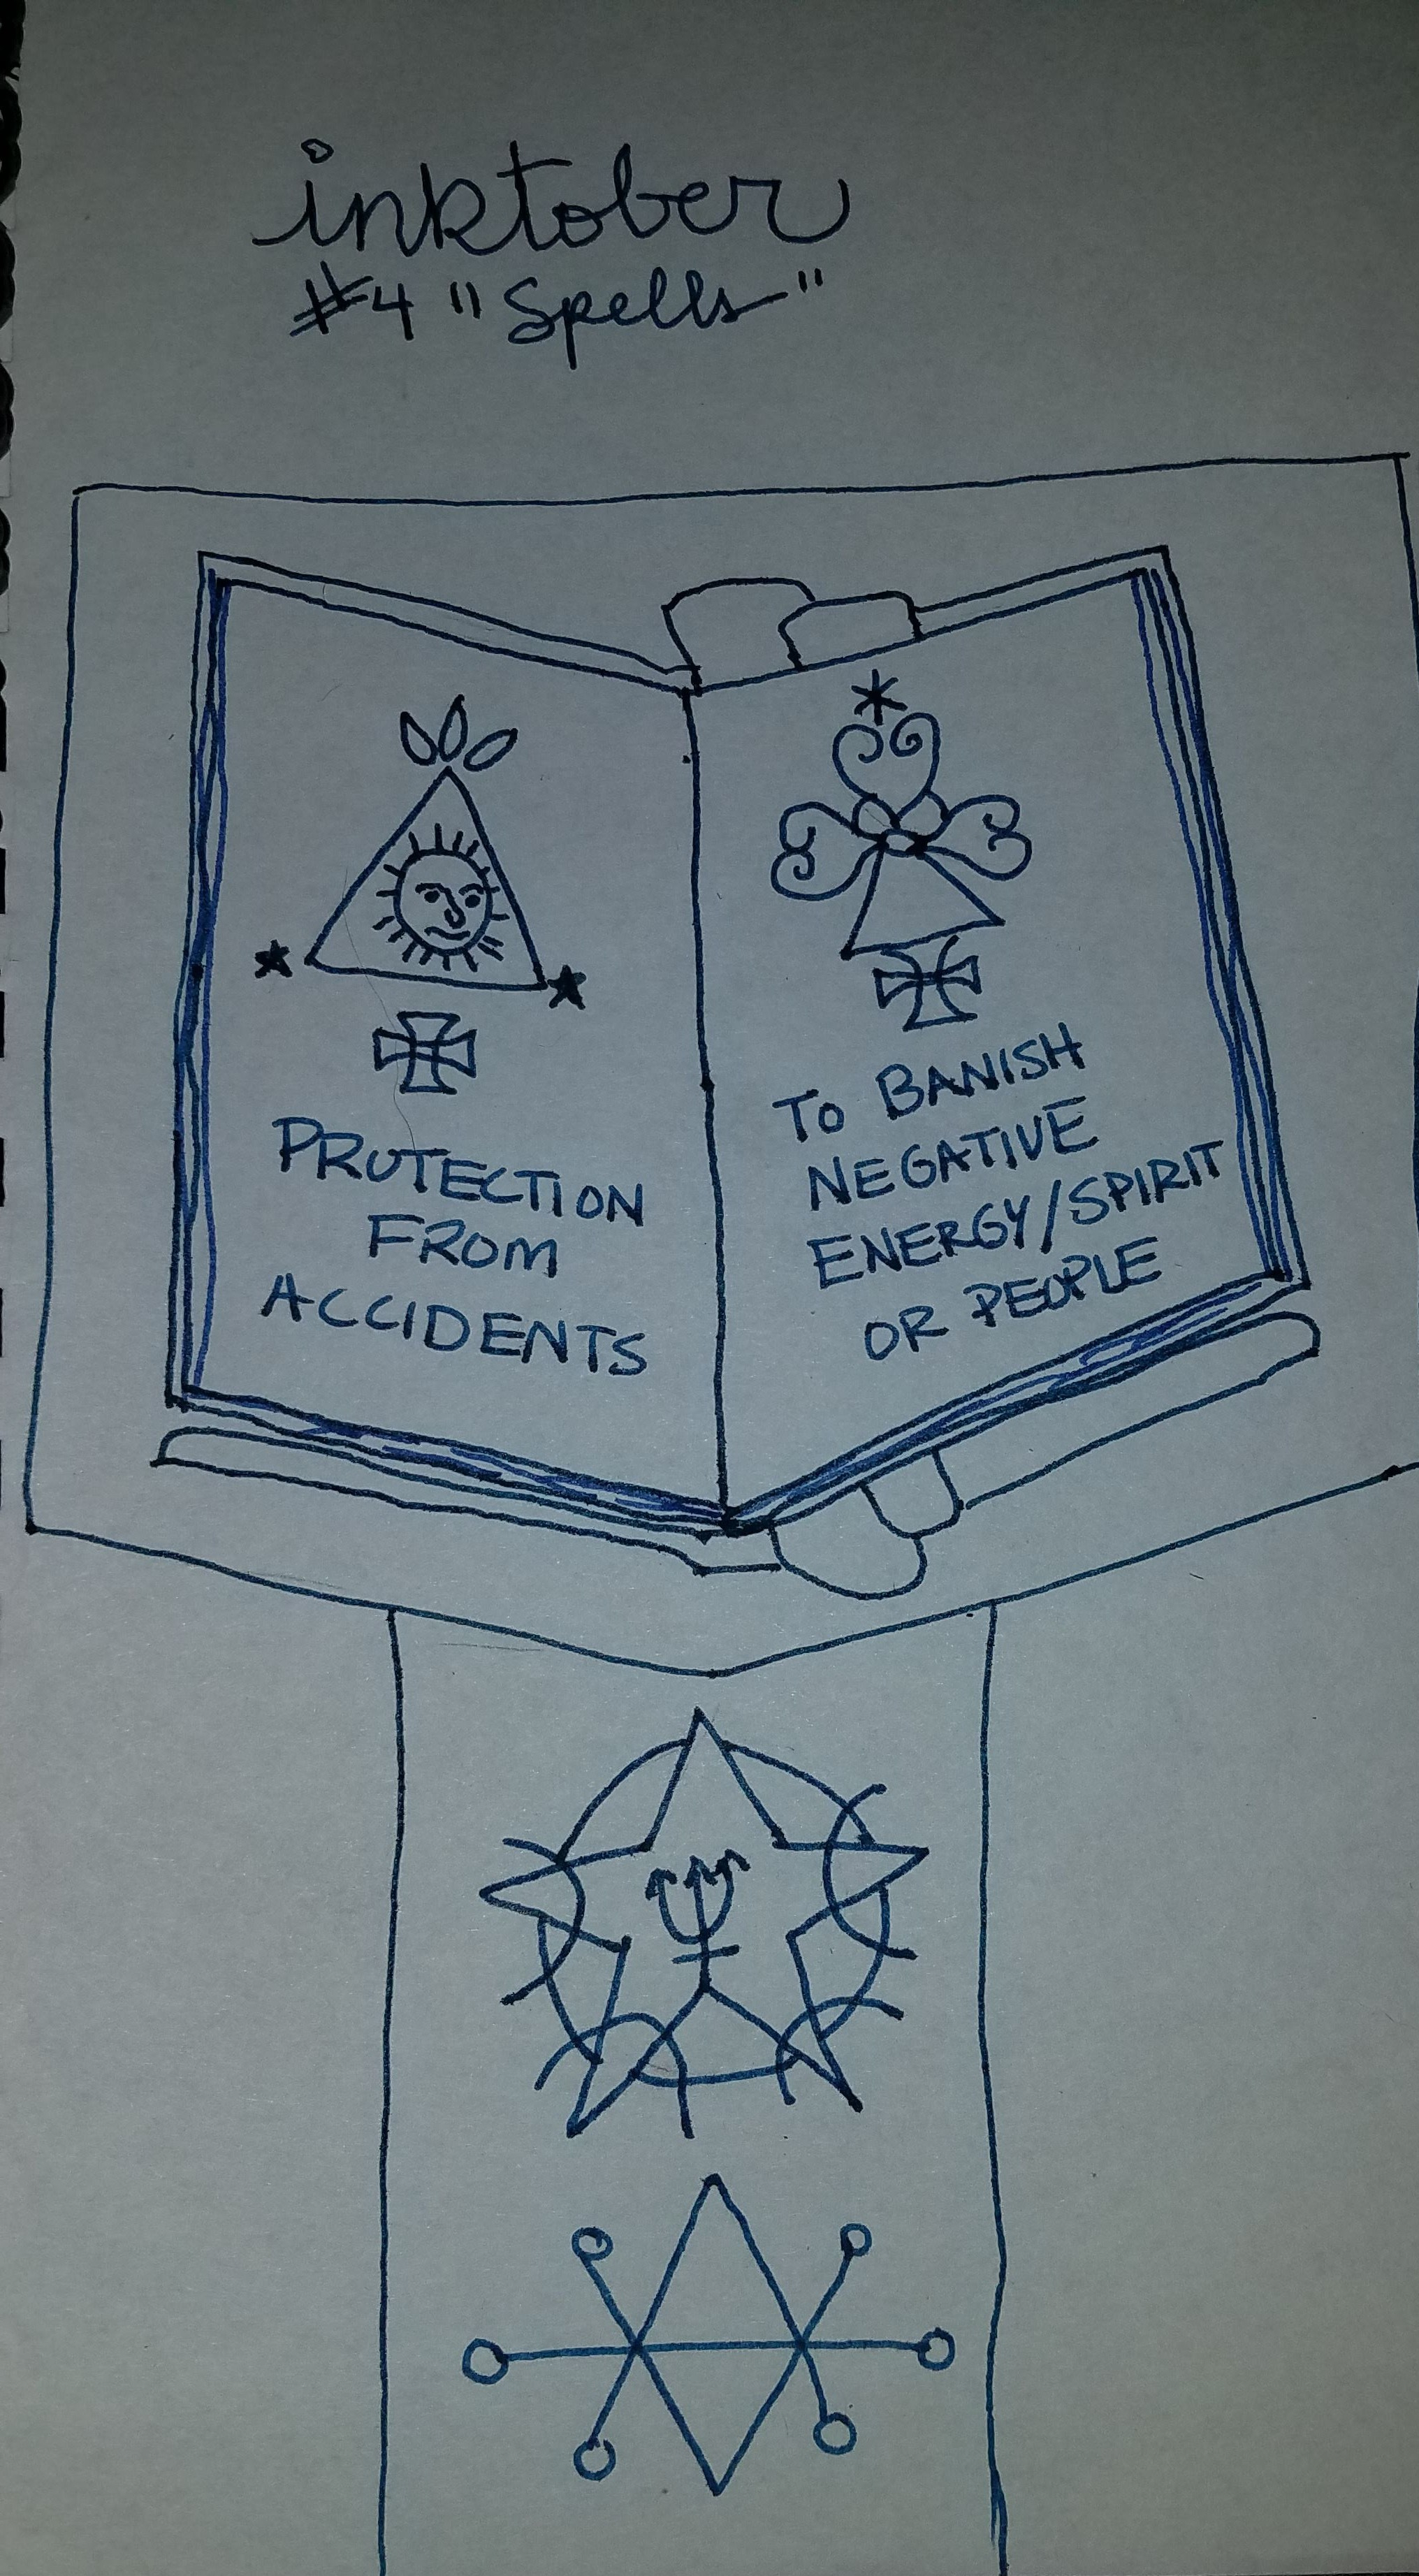 inktober
#4 "Spells"
PROTECTION
FROM
ACCIDENTS
TO BANISH
NEGATIVE
ENERGY/SPIRIT
OR PEOPLE